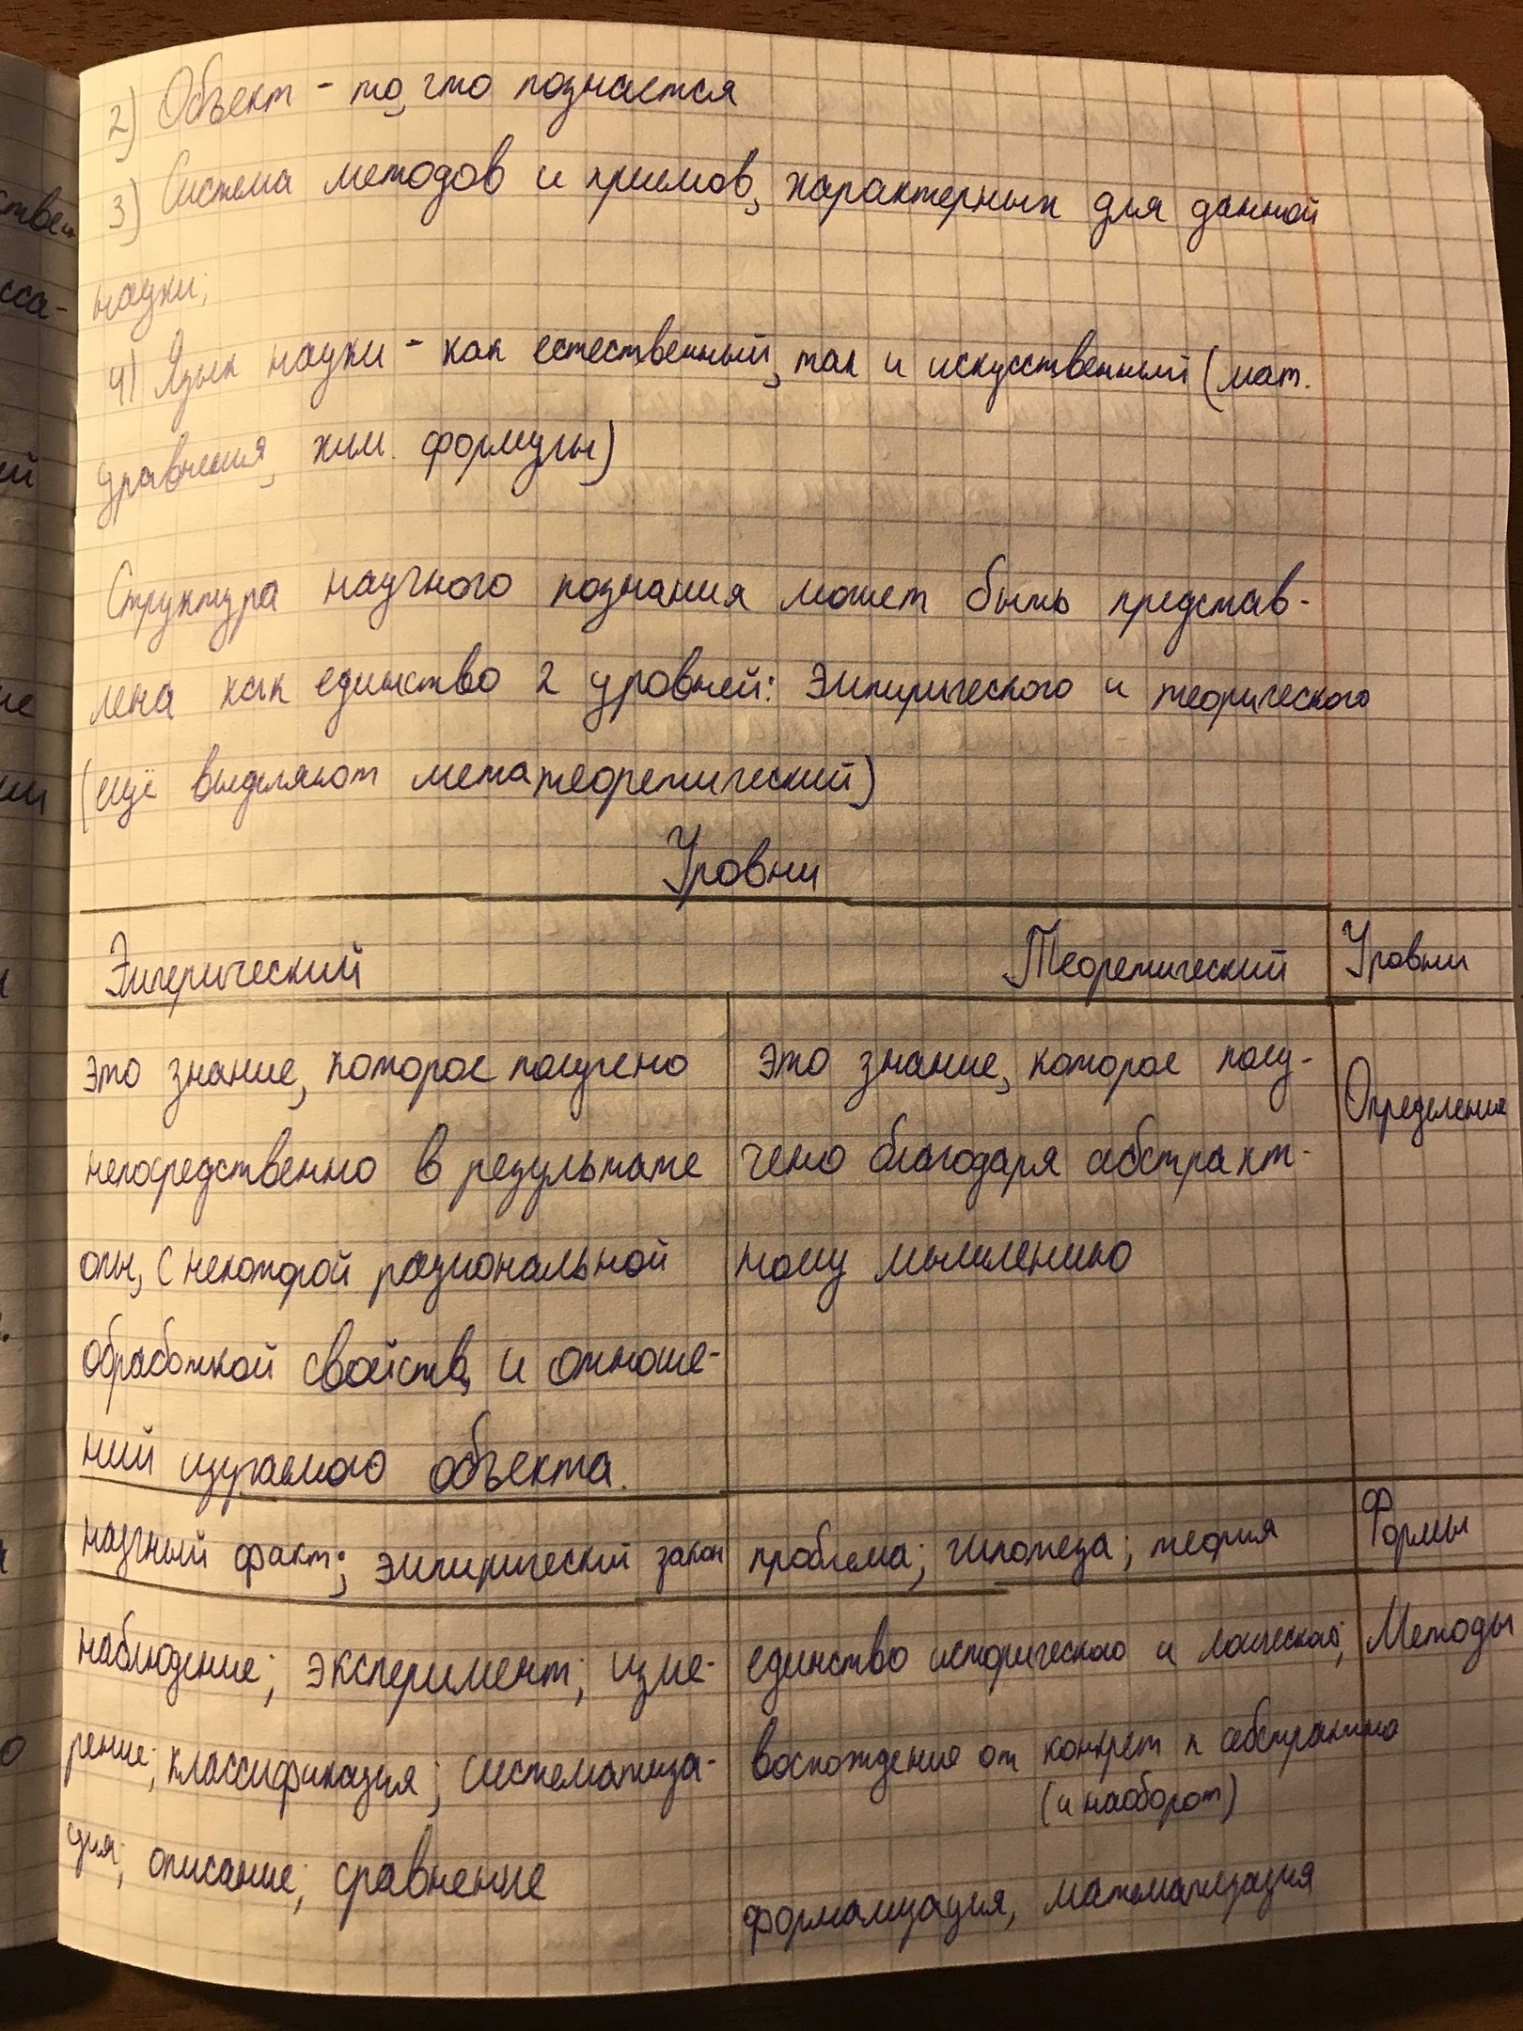 2) Объект - то, что познается
3) Система методов и приемов, характерных для данной
науки;
4) Язык науки - как естественный, так и искусственный (мат.
уравнения, хим. формулы)
Структура научного познания может быть представ-
лена как единство 2 уровней: эмпирического и теорического
(ещё выделяют метатеоретический)
Уровни
Эмперический Теоретический Уровни
это знание, которое получено
непосредственно в результате
опы, с некоторой рациональной
обработкой свойств, и отноше-
ний изучаемого объекта.
это знание, которое полу-
чено благодаря абстракт-
ному мышлению
Определение
научный факт; эмпирический закон проблема; гипотеза; теория Формы
наблюдение; эксперимент; изме-
рение; классификация; систематиза-
ция; описание; сравнение
единство исторического и
восхождение от конкрет к
(и наоборот)
формализация, математизация
Методы
ствен
сса-
ей